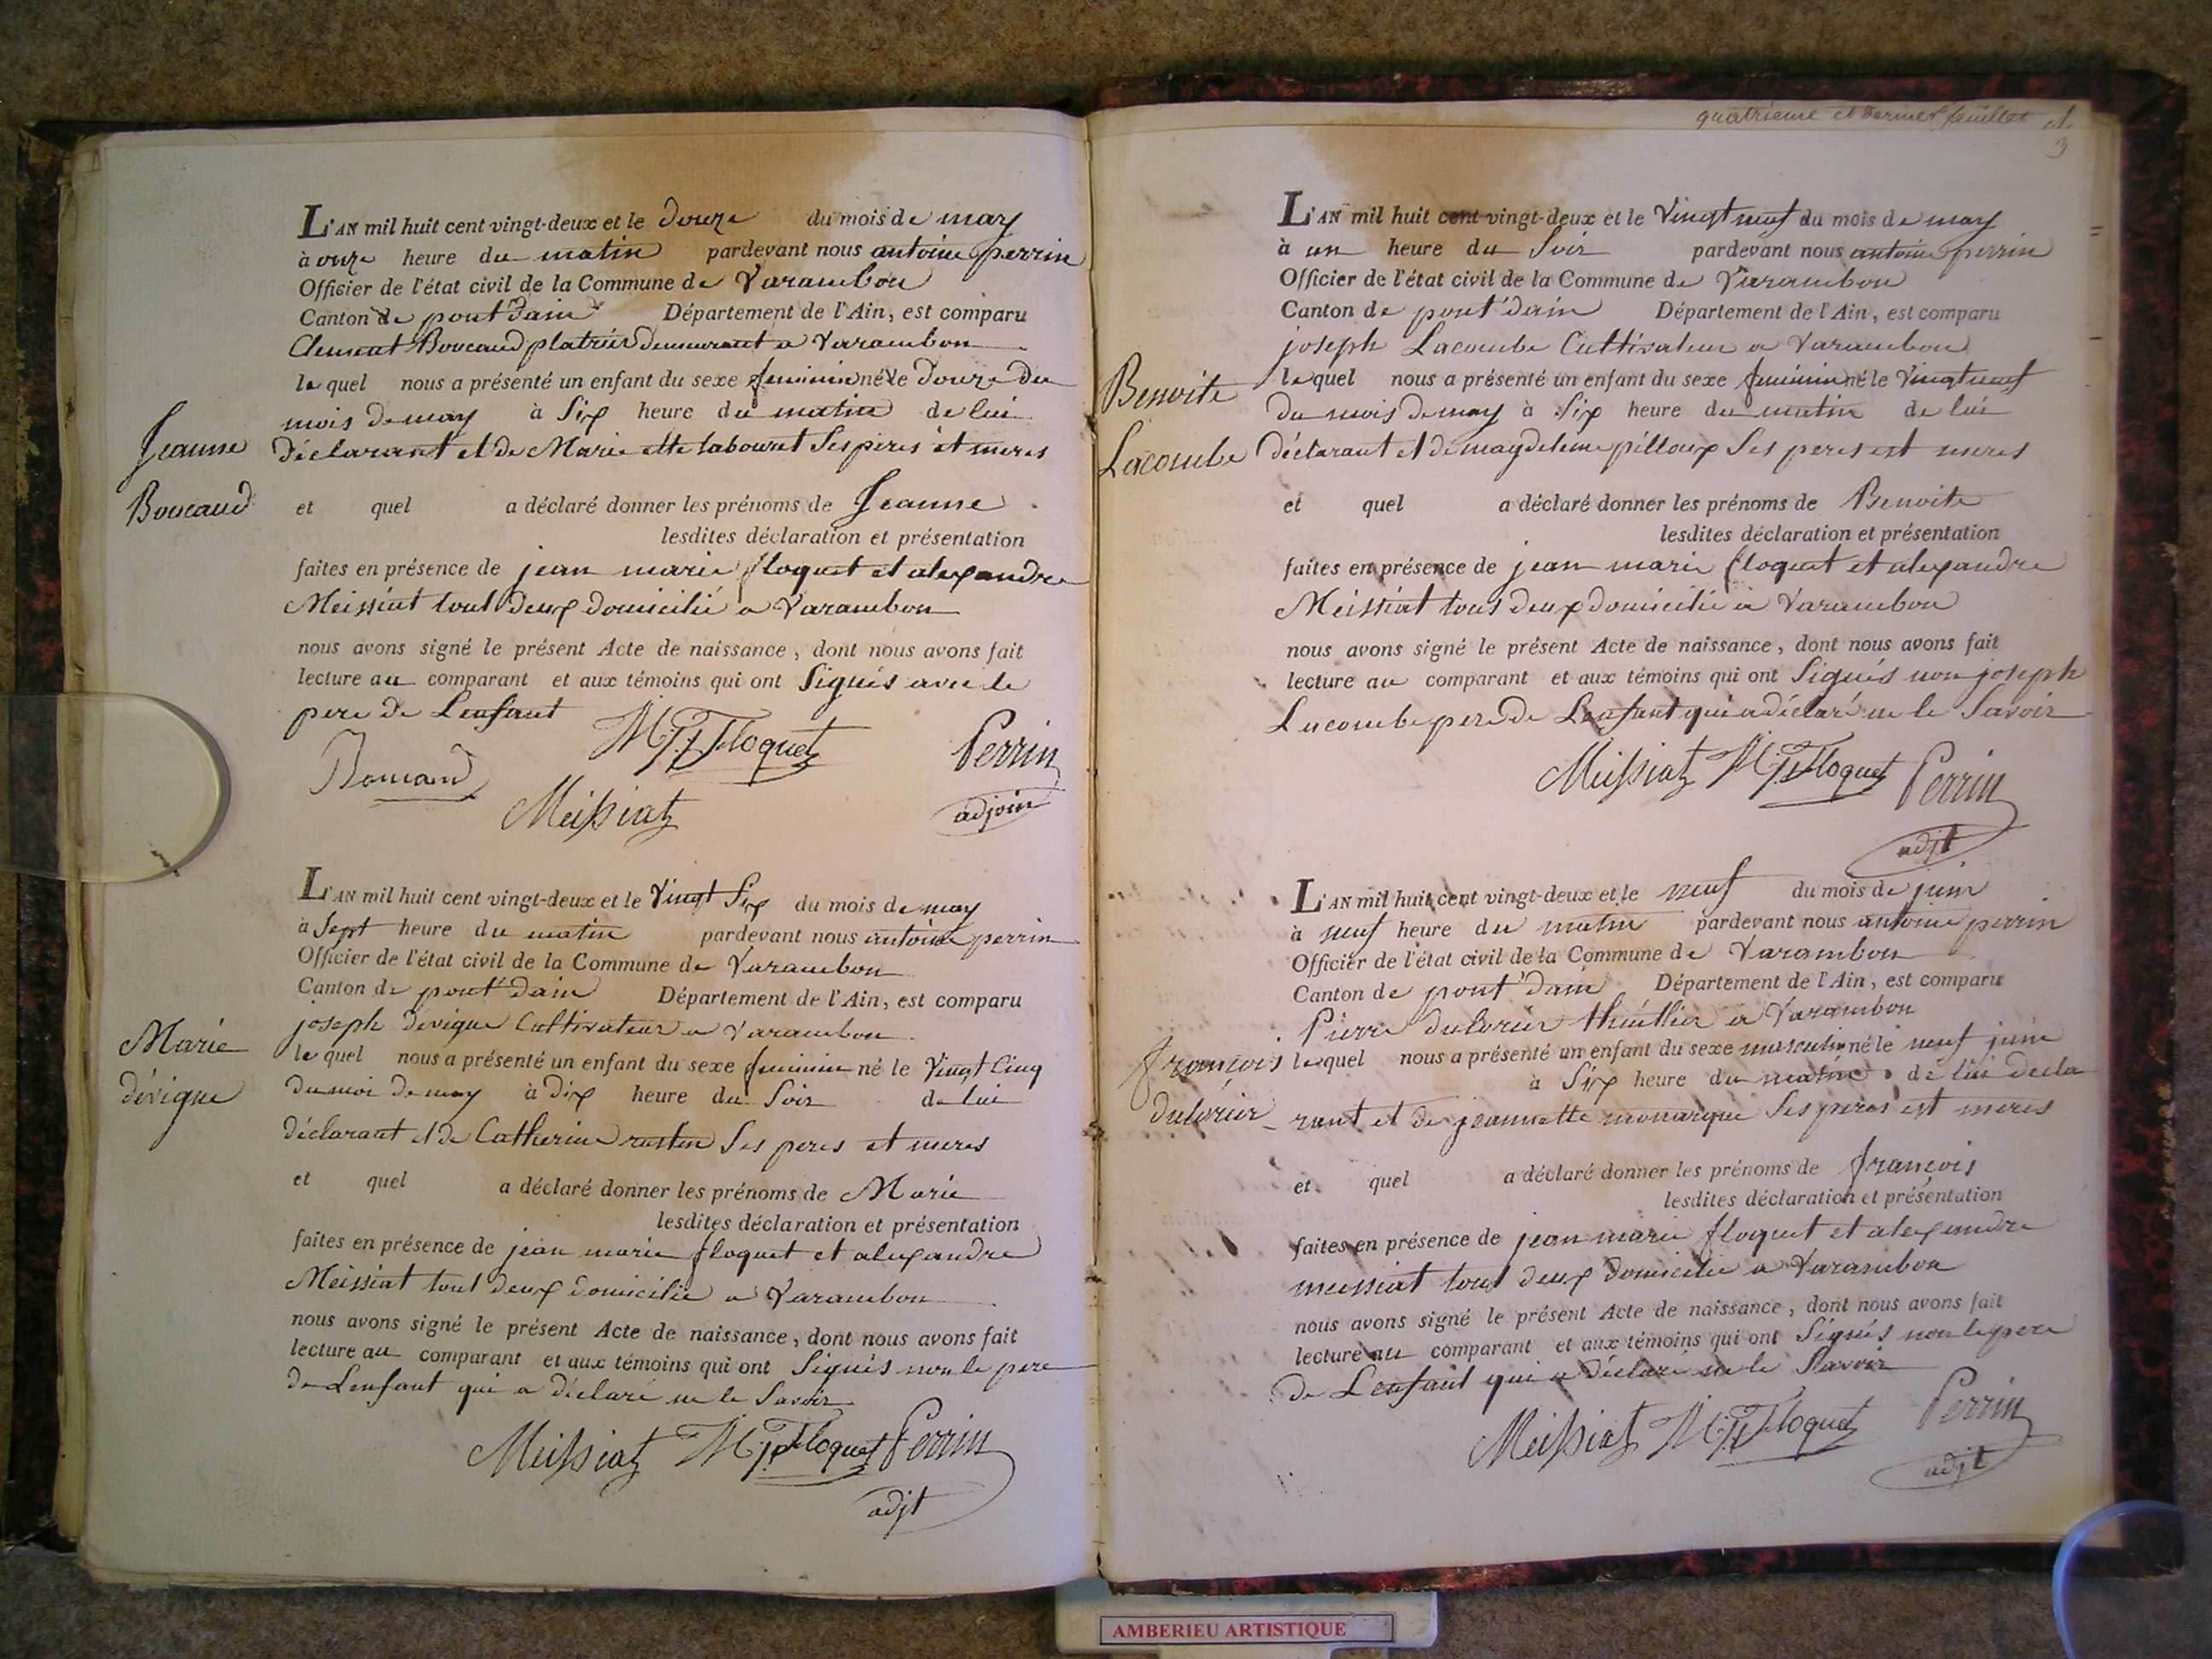 L'AN mil huit cent vingt-deux et le douze du mois de may
à onze heure du matin pardevant nous antoine perrin
Officier de l'état civil de la Commune de Varambon
Canton de pont d'ain Département de l'Ain, est comparu
Clement Boucaud platrier demeurant a Varambon
lequel nous a présenté un enfant du sexe feminin né le douze du
mois de may à Six heure du matin de lui
Jeanne
déclarant et de Marie ette labouret Ses peres et meres
Boucaud
et quel a déclaré donner les prénoms de Jeanne
lesdites déclaration et présentation
faites en présence de jean marie floquet et alexandre
Meissiat tout deux domicilié a Varambon
nous avons signé le présent Acte de naissance, dont nous avons fait
lecture au comparant et aux témoins qui ont Signés avec le
pere de Lenfant
MJFloquet Perrin
Meissiat adjoin
L'AN mil huit cent vingt-deux et le Vingt Six du mois de may
à Sept heure du matin pardevant nous antoine perrin
Officier de l'état civil de la Commune de Varambon
Canton de pont d'ain Département de l'Ain, est comparu
joseph devigne Cultivateur a Varambon
Marie
lequel nous a présenté un enfant du sexe feminin né le Vingt Cinq
dévigne
du moi de may à dix heure du Soir de lui
déclarant et de Catherine Ses peres et meres
et quel a déclaré donner les prénoms de Marie
lesdites déclaration et présentation
faites en présence de jean marie floquet et alexandre
Meissiat tout deux domicilié a Varambon
nous avons signé le présent Acte de naissance, dont nous avons fait
lecture au comparant et aux témoins qui ont Signés non le pere
de Lenfant qui a déclaré ne le Savoir
Meissiat MJFloquet Perrin
adjt
quatrieme et dernier feuillet
3
L'AN mil huit cent vingt-deux et le Vingt neuf du mois de may
à un heure du Soir pardevant nous antoine perrin
Officier de l'état civil de la Commune de Varambon
Canton de pont d'ain Département de l'Ain, est comparu
joseph Lacombe Cultivateur a Varambon
Benoite
lequel nous a présenté un enfant du sexe feminin né le Vingt neuf
du mois de may à Six heure du matin de lui
Lacombe
déclarant et de magdeleine pilloux Ses peres est meres
et quel a déclaré donner les prénoms de Benoite
lesdites déclaration et présentation
faites en présence de jean marie floquet et alexandre
Meissiat tous deux domicilié a Varambon
nous avons signé le présent Acte de naissance, dont nous avons fait
lecture au comparant et aux témoins qui ont Signés non joseph
Lacombe pere de Lenfant qui a déclaré ne le Savoir
Meissiat MJFloquet Perrin
adjt
L'AN mil huit cent vingt-deux et le neuf du mois de juin
à neuf heure du matin pardevant nous antoine perrin
Officier de l'état civil de la Commune de Varambon
Canton de pont d'ain Département de l'Ain, est comparu
Pierre dulorier a Varambon
françois
lequel nous a présenté un enfant du sexe masculin né le neuf juin
à Six heure du matin de lui decla
dulorier
rant et de jeannette monarque Ses peres est meres
et quel a déclaré donner les prénoms de françois
lesdites déclaration et présentation
faites en présence de jean marie floquet et alexandre
meissiat tout deux domicilié a Varambon
nous avons signé le présent Acte de naissance, dont nous avons fait
lecture au comparant et aux témoins qui ont Signés non le pere
de Lenfant qui a déclaré ne le Savoir
Meissiat MJFloquet Perrin
adjt
AMBERIEU ARTISTIQUE